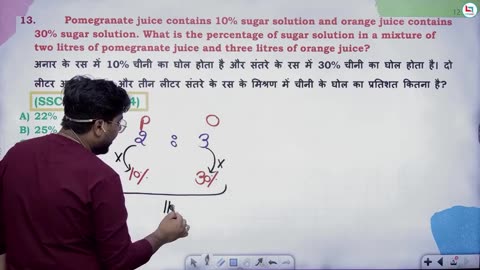 13. Pomegranate juice contains 10% sugar solution and orange juice contains
30% sugar solution. What is the percentage of sugar solution in a mixture of
two litres of pomegranate juice and three litres of orange juice?
अनार के रस में 10% चीनी का घोल होता है और संतरे के रस में 30% चीनी का घोल होता है। दो
लीटर और तीन लीटर संतरे के रस के मिश्रण में चीनी के घोल का प्रतिशत कितना है?
(SSC 4)
A) 22%
B) 25%
P O
2 : 3
x x
10% 30%